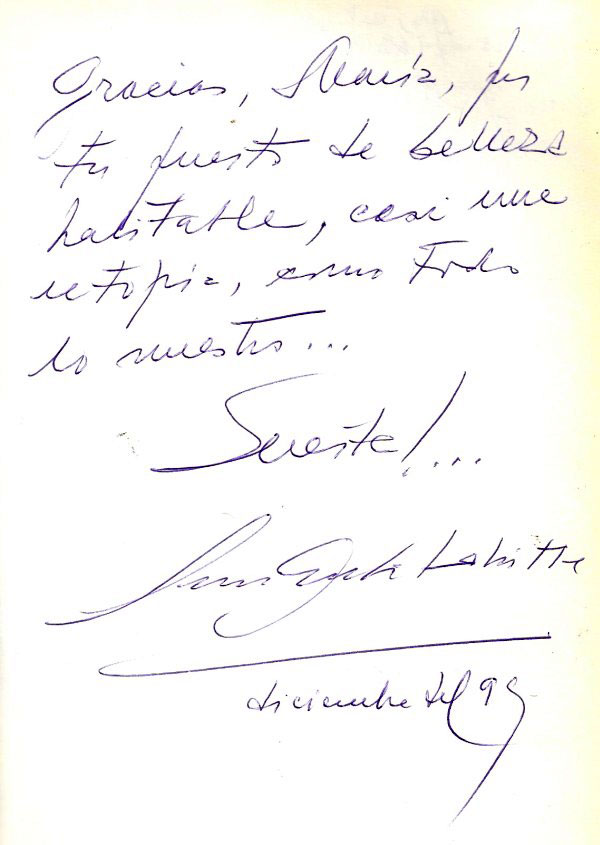 Gracias, María, por
tu puesto de belleza
habitable, casi una
utopía, como todo
lo nuestro...
Suerte!...
Labitte
diciembre del 99